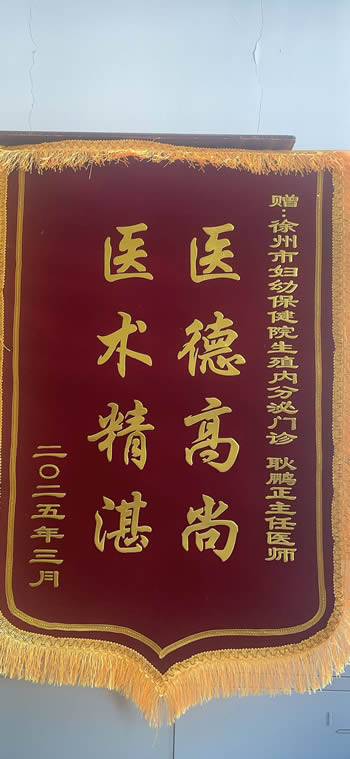 赠:徐州市妇幼保健院生殖内分泌门诊 耿鹏正主任医师
医德高尚
医术精湛
二〇二五年三月